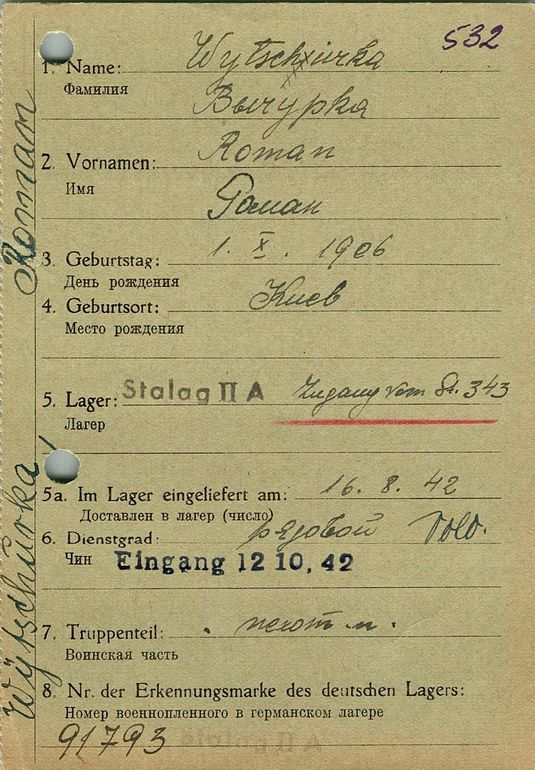 532
1. Name: Wytschurka
Фамилия
Вычурка
2. Vornamen: Roman
Имя
Роман
3. Geburtstag: 1. X. 1906
День рождения
4. Geburtsort: Киев
Место рождения
5. Lager: Stalag II A Zugang vom St. 343
Лагер
5a. Im Lager eingeliefert am: 16. 8. 42
Доставлен в лагер (число)
6. Dienstgrad: рядовой Sold.
Чин Eingang 12 10. 42
7. Truppenteil:
Воинская часть
8. Nr. der Erkennungsmarke des deutschen Lagers:
Номер военнопленного в германском лагере
91793
Wytschurka, Roman